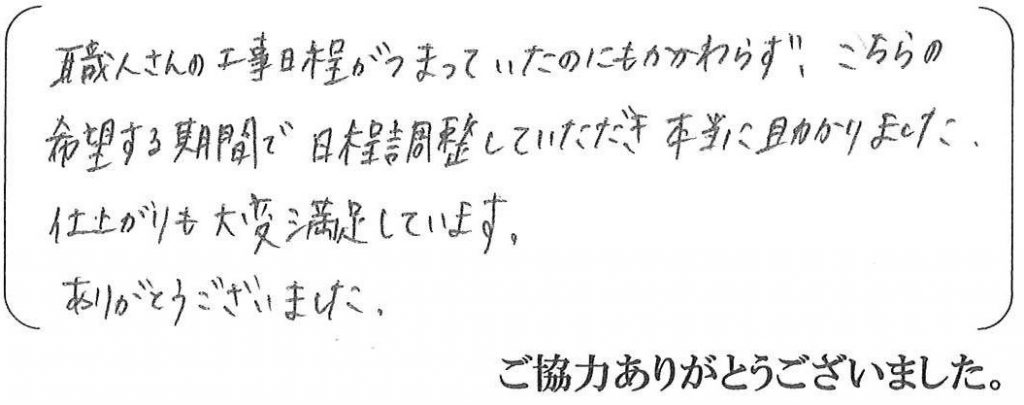 職人さんの工事日程がつまっていたのにもかかわらず、こちらの
希望する期間で日程調整していただき本当に助かりました、
仕上がりも大変満足しています。
ありがとうございました、
ご協力ありがとうございました。